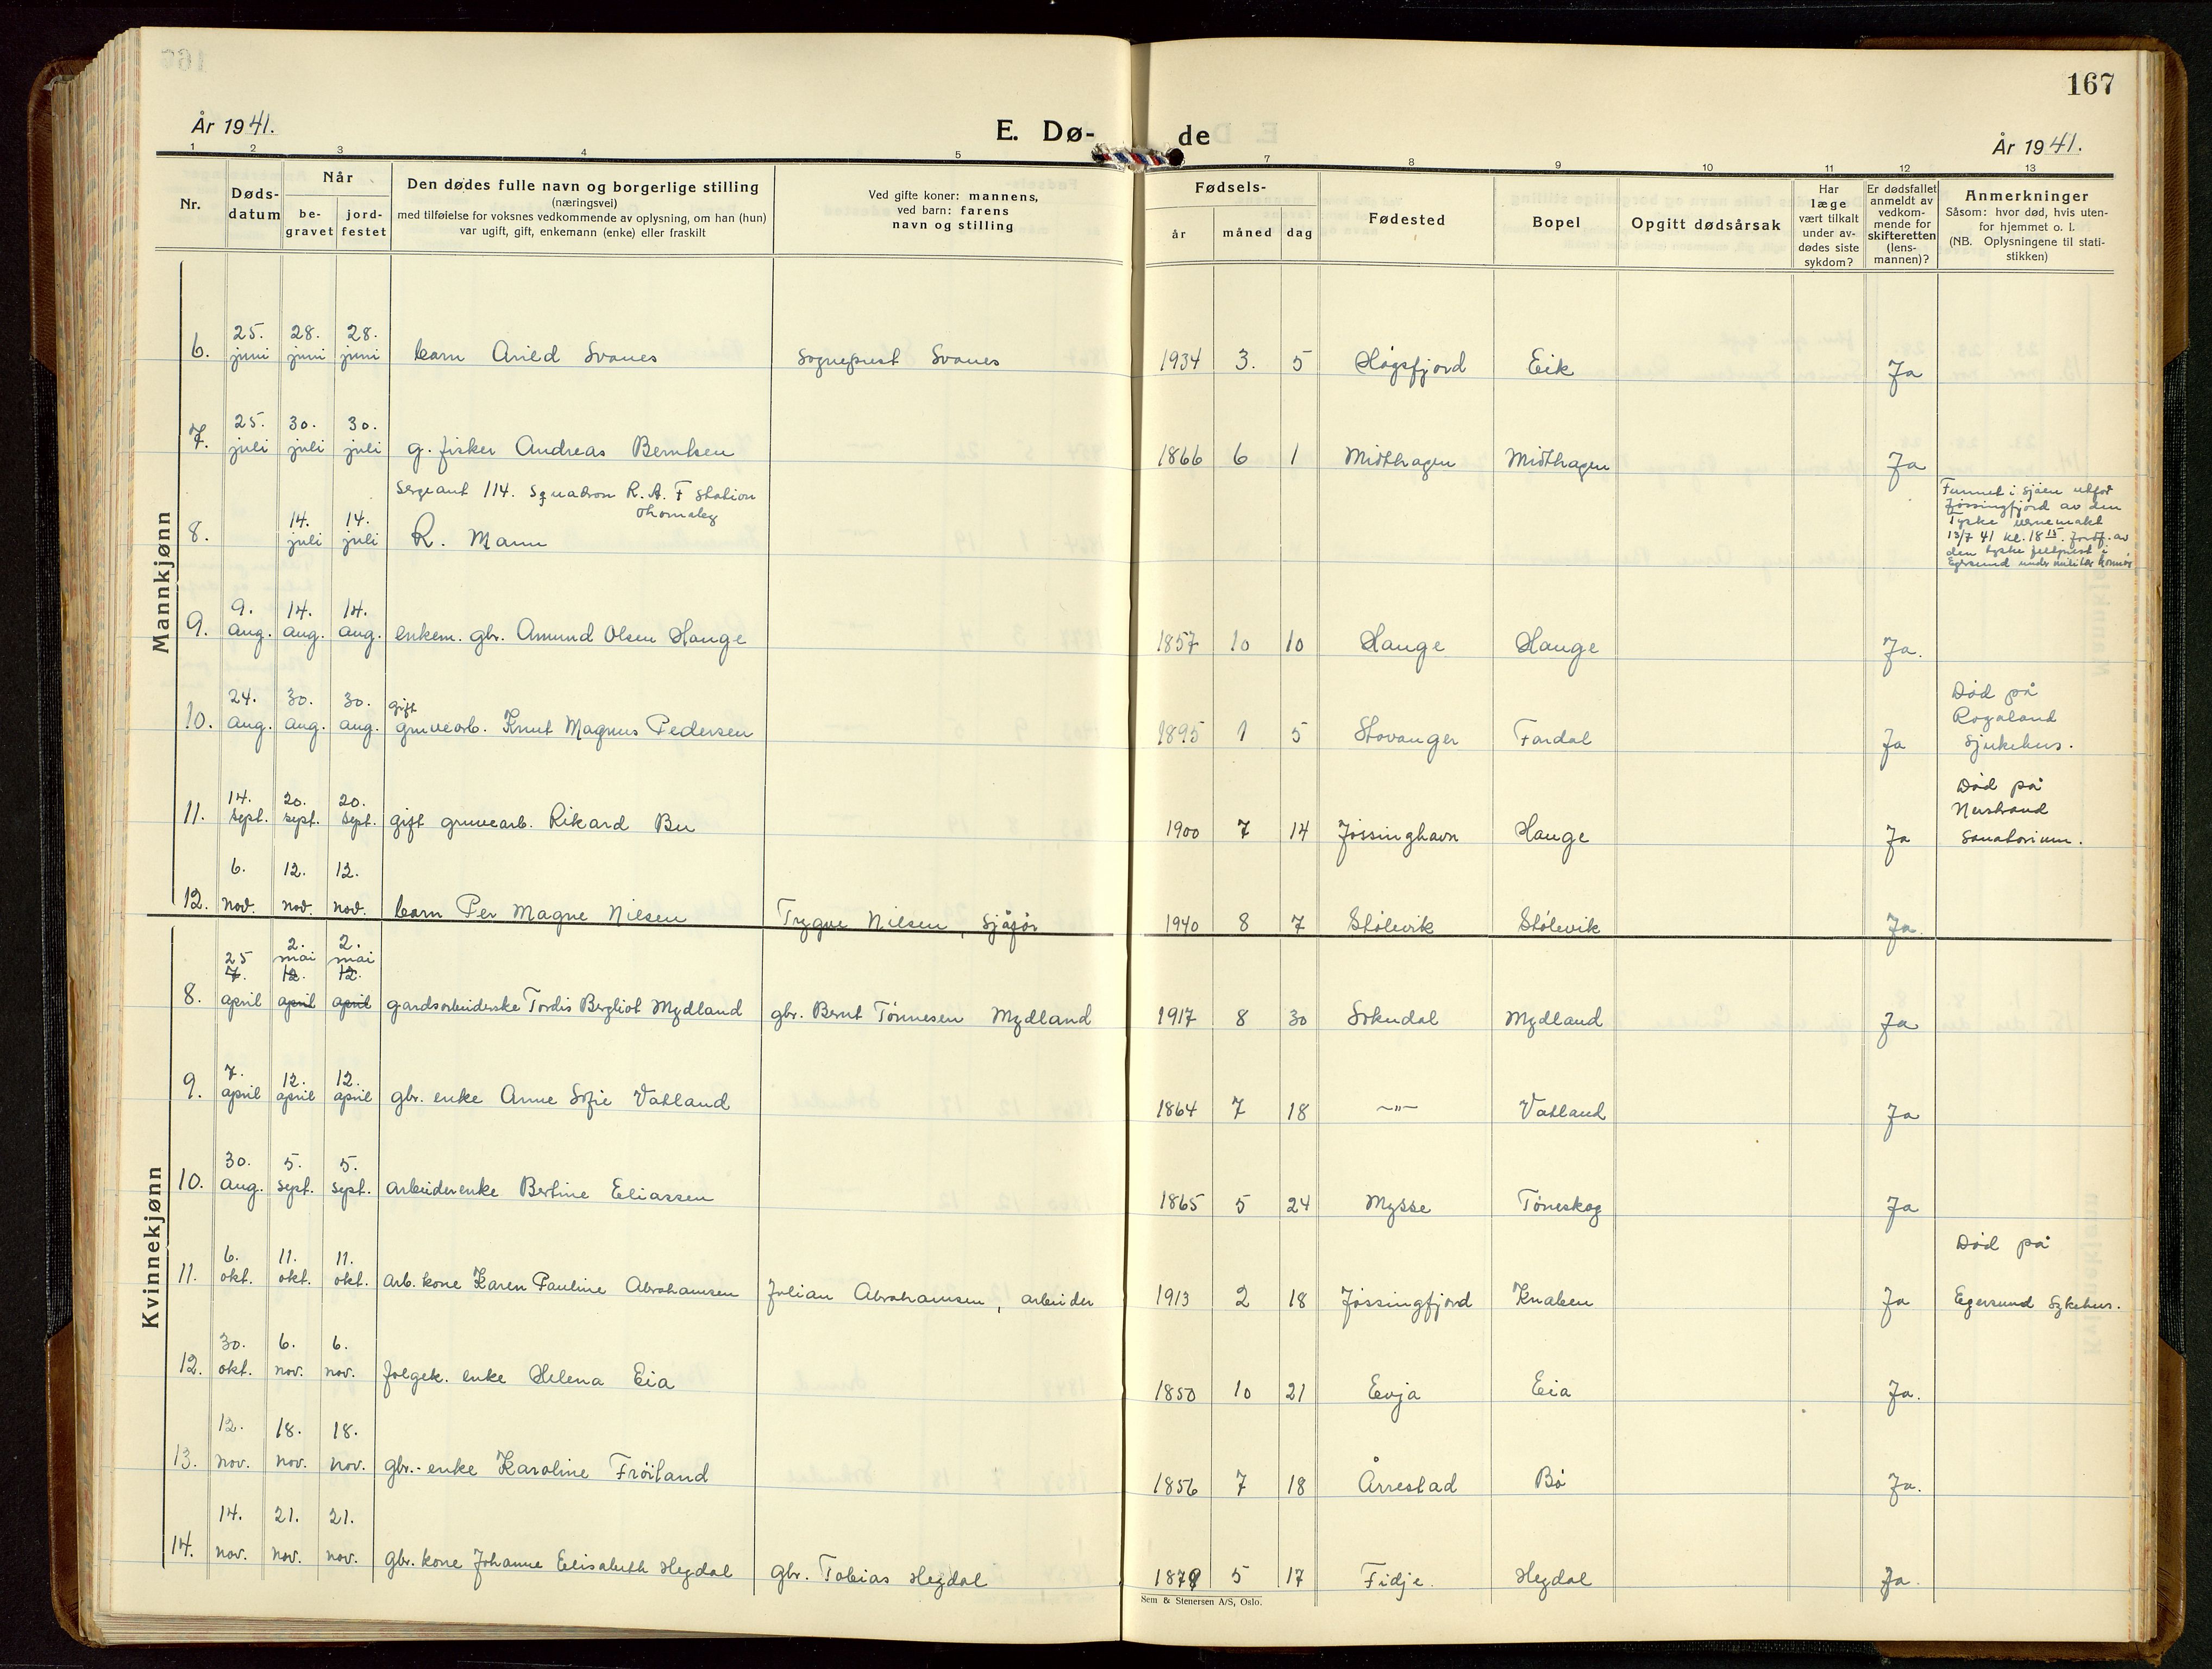 167
År 1941.
E. Dø-
de
År 1941.
1 2 3 4 5 7 8 9 10 11 12 13
Nr.
Døds-
datum
Når
be-
gravet
jord-
festet
Den dødes fulle navn og borgerlige stilling
(næringsvei)
med tilføielse for voksnes vedkommende av oplysning, om han (hun)
var ugift, gift, enkemann (enke) eller fraskilt
Ved gifte koner: mannens,
ved barn: farens
navn og stilling
Fødsels-
år måned dag
Fødested
Bopel
Opgitt dødsårsak
Har
læge
vært tilkalt
under av-
dødes siste
sykdom?
Er dødsfallet
anmeldt av
vedkom-
mende for
skifteretten
(lens-
mannen)?
Anmerkninger
Såsom: hvor død, hvis uten-
for hjemmet o. l.
(NB. Oplysningene til stati-
stikken)
Mannkjønn
25. 28. 28.
6. juni juni juni barn Arild Svanes sogneprest Svanes 1934 3. 5 Høgsfjord Eik Ja
25. 30. 30.
7. juli juli juli g. fisker Andreas Berntsen 1866 6 1 Midthagen Midthagen Ja
sergeant 114. Squadron R. A. F station
14. 14.
8. juli juli R. Mann
Funnet i sjøen utfor
Jøssingfjord av den
Tyske vernemakt
13/7 41 kl. 18 15. Jordf. av
den tyske feltprest i
Egersund under militær honnør
9. 14. 14.
9. aug. aug. aug. enkem. gbr. Amund Olsen Hauge 1857 10 10 Hauge Hauge Ja.
24. 30. 30. gift
10. aug. aug. aug. gruvearb. Knut Magnus Pedersen 1895 1 5 Stavanger Fardal Ja
Død på
Rogaland
Sjukehus.
14. 20. 20.
11. sept. sept. sept. gift gruvearb. Rikard Bu 1900 7 14 Jøssinghavn Hauge Ja
Død på
Nerstrand
Sanatorium.
6. 12. 12.
12. nov. nov. nov. barn Per Magne Nilsen Trygve Nilsen, sjåfør 1940 8 7 Stølevik Stølevik Ja.
Kvinnekjønn
25 2. mai 2. mai
7. 12. 12.
8. april april april gardsarbeiderske Tordis Bergliot Mydland gbr. Bernt Tønnesen Mydland 1917 8 30 Sokndal Mydland Ja
7. 12. 12.
9. april april april gbr. enke Anne Sofie Vatland 1864 7 18 —"— Vatland Ja
30. 5. 5.
10. aug. sept. sept. arbeiderenke Bertine Eliassen 1865 5 24 Mysse Tøneskog Ja
6. 11. 11.
11. okt. okt. okt. arb. kone Karen Pauline Abrahamsen Julian Abrahamsen, arbeider 1913 2 18 Jøssingfjord Knaben Ja
Død på
Egersund Sykehus.
30. 6. 6.
12. okt. nov. nov. folgek. enke Helena Eia 1850 10 21 Evja Eia Ja.
12. 18. 18.
13. nov. nov. nov. gbr.-enke Karoline Frøiland 1856 7 18 Årrestad Bø Ja.
14. 21. 21.
14. nov. nov. nov. gbr. kone Johanne Elisabeth Hegdal gbr. Tobias Hegdal 5 17 Fidje. Hegdal Ja.
Sem & Stenersen A/S, Oslo.